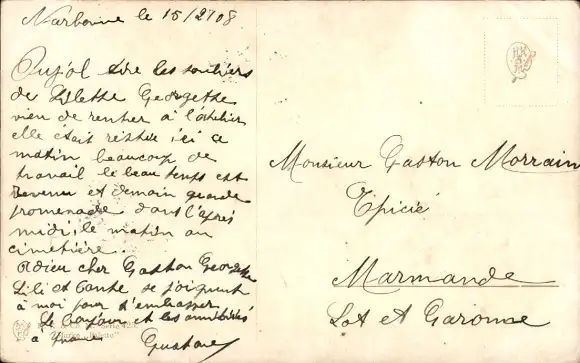 Narbonne le 15/2 08
Pujol tire les souliers
de Lilethe Georgethe
vien de rentrer à l'atelier
elle était restée ici ce
matin beaucoup de
travail le beau temps est
revenu et demain grande
promenade dans l'après
midi, le matin au
cimetière.
Adieu cher Gaston Georgethe
Lili et tante se joignent
à moi pour t'embrasser
Le bonjour et les amitiés
a
Gustave
Monsieur Gaston Morrain
Epicié
Marmande
Lot et Garonne